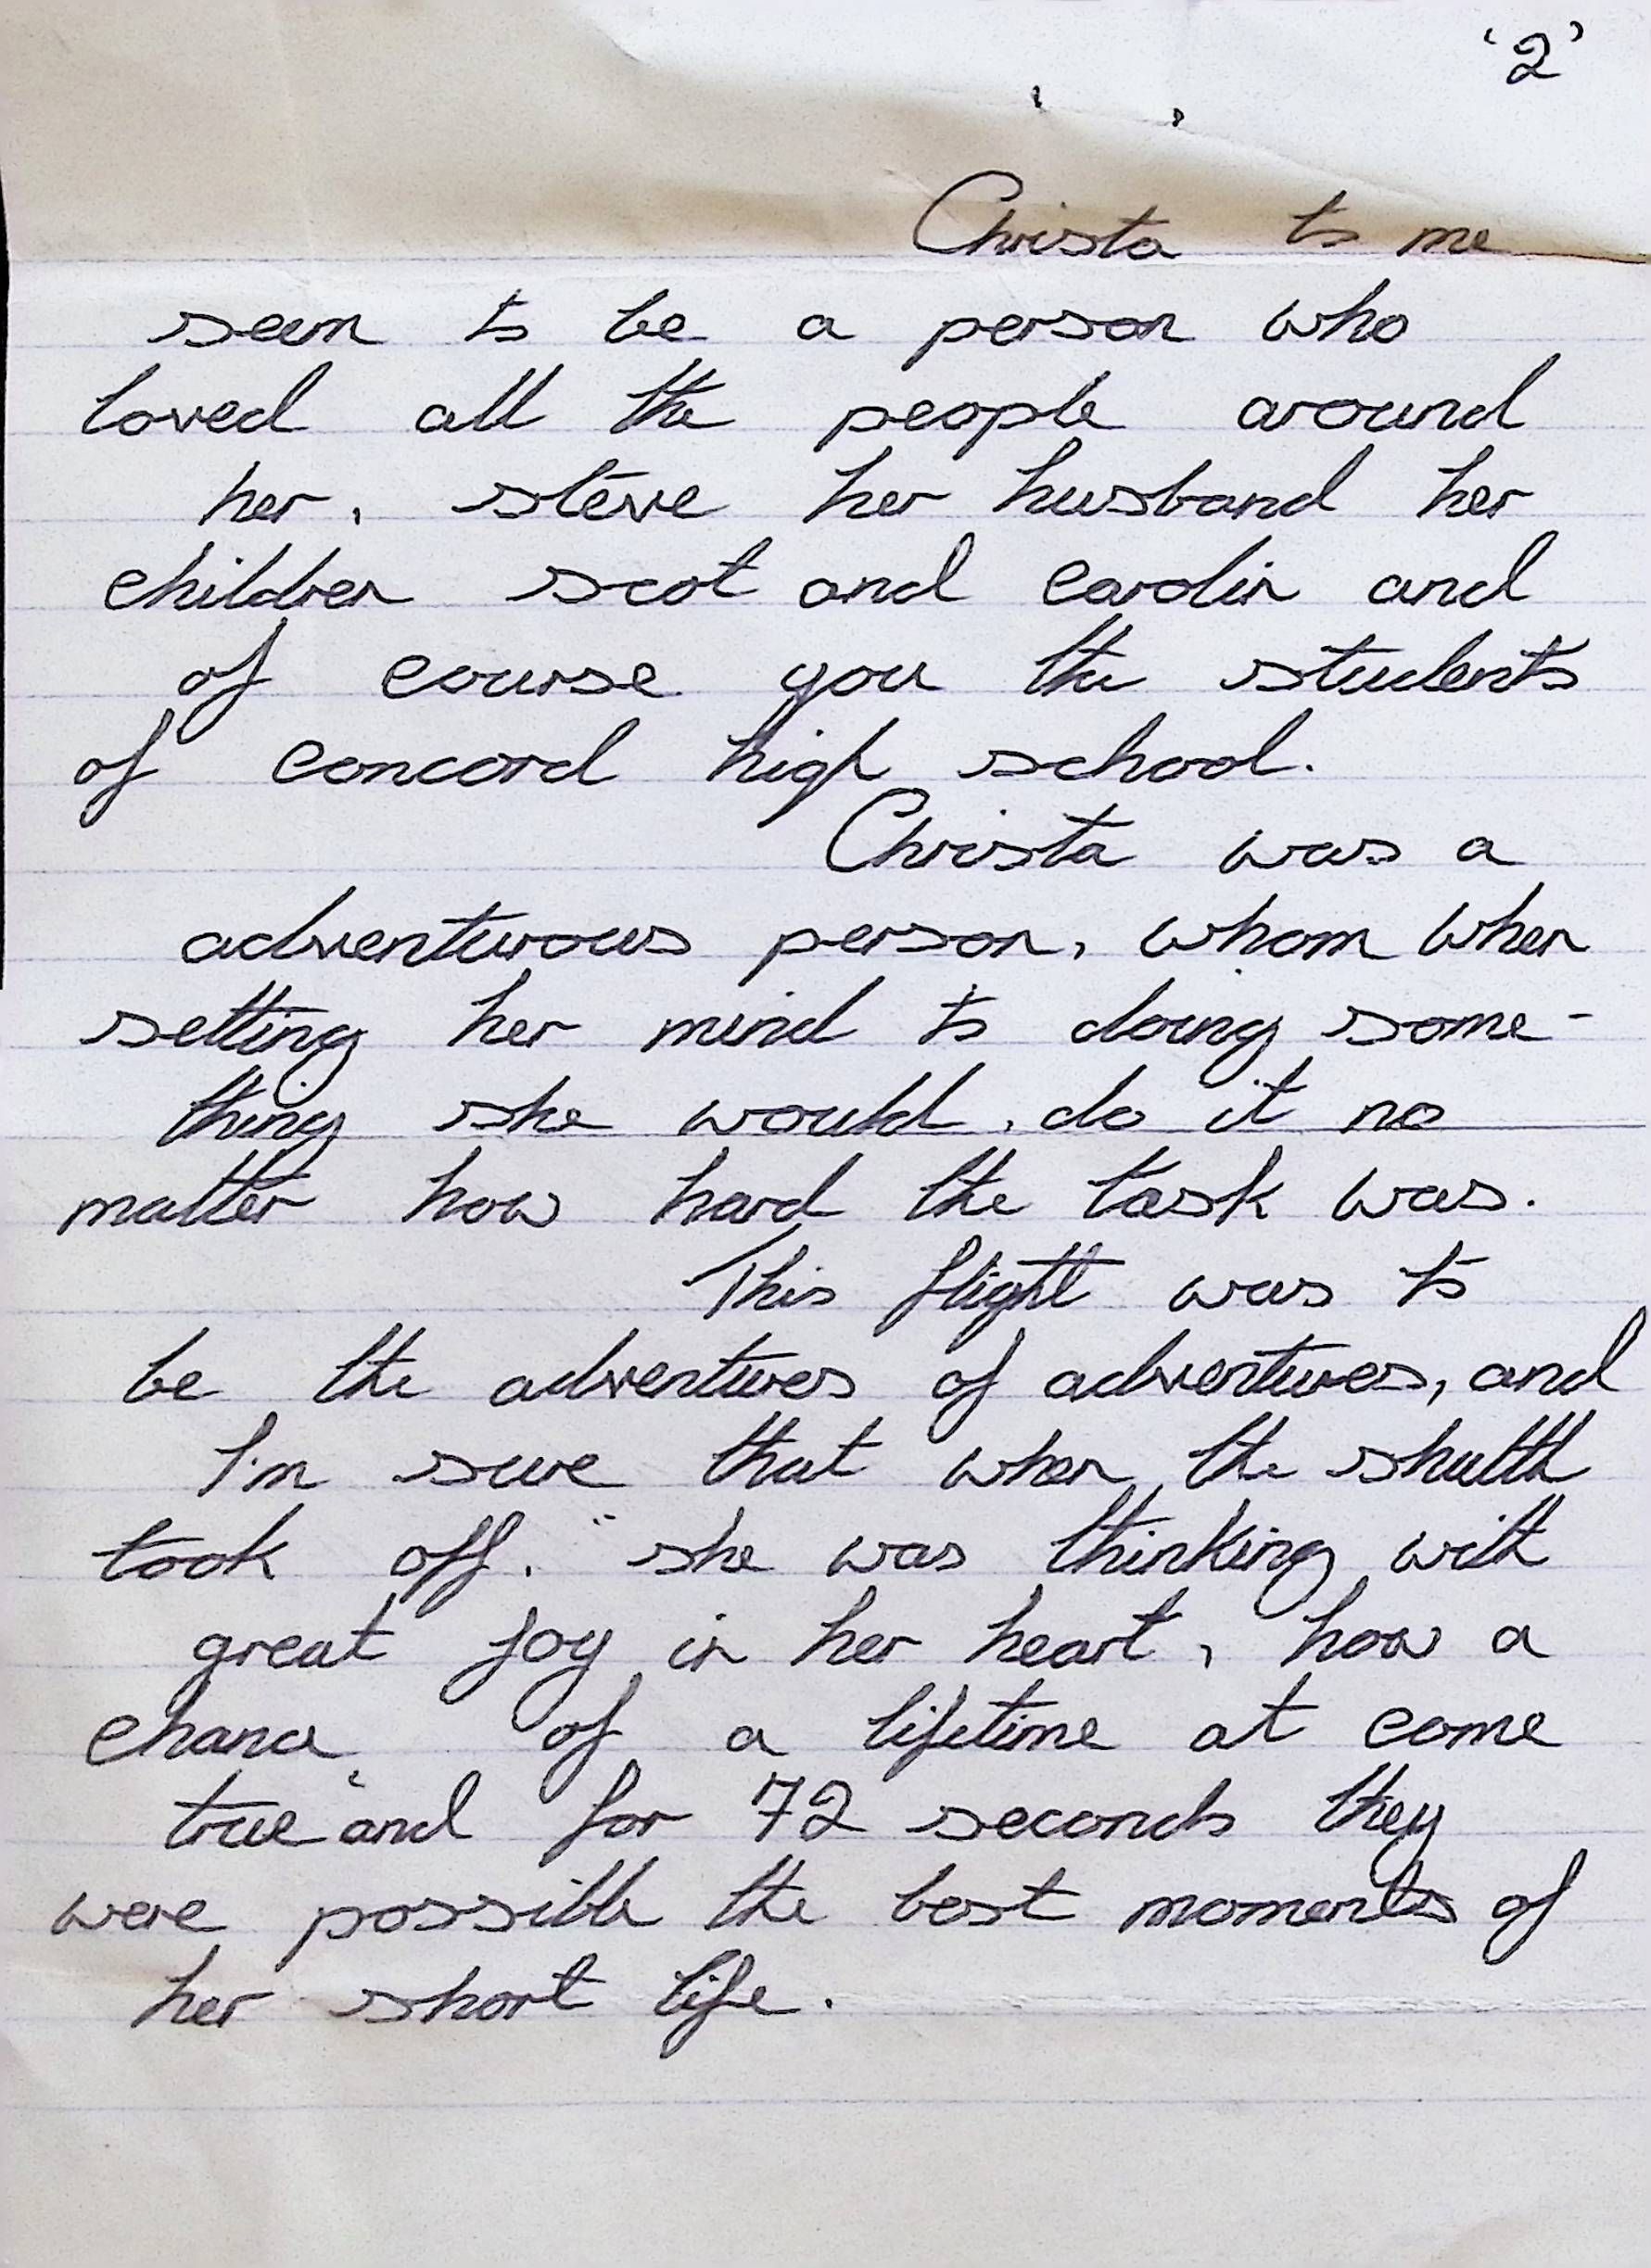 ‘2’
Christa to me
seem to be a person who
loved all the people around
her, steve her husband her
children scot and carolin and
of course you the students
of concord high school.
Christa was a
adventurous person, whom when
setting her mind to doing some-
thing she would, do it no
matter how hard the task was.
This flight was to
be the adventures of adventures, and
I'm sure that when the shuttle
took off. "she was thinking with
great joy in her heart, how a
chance of a lifetime at come
true" and for 72 seconds they
were possible the best moments of
her short life.